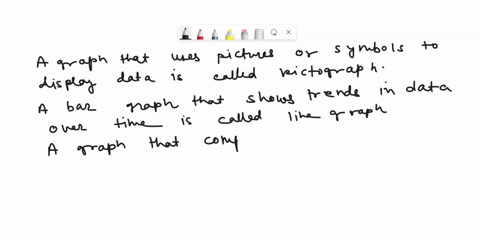 A graph that uses pictures or symbols to
display data is called pictograph.
A bar graph that shows trends in data
over time is called line graph
A graph that comp